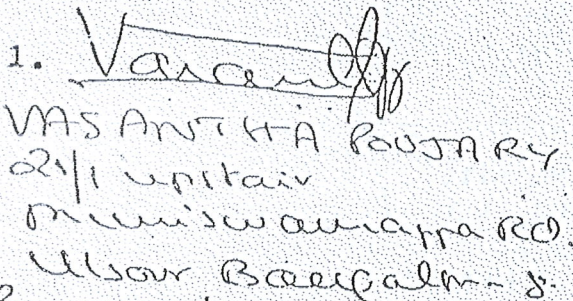 1. Vasanth
VASANTHA POOJARY
21/1 upstair
Muniswamappa RD.
Ulsoor Bangalore - 8.
2